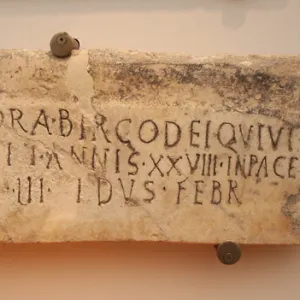 ORA·BIRCO DEI QVIVI
IT·ANNIS·XXVIII·INPACE
·III·IDVS·FEBR